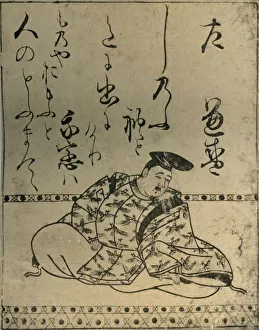 左　兼盛
しのふ
れと
いろに出に
けりわ
か恋ハ
ものやおもふと
人のとふまて